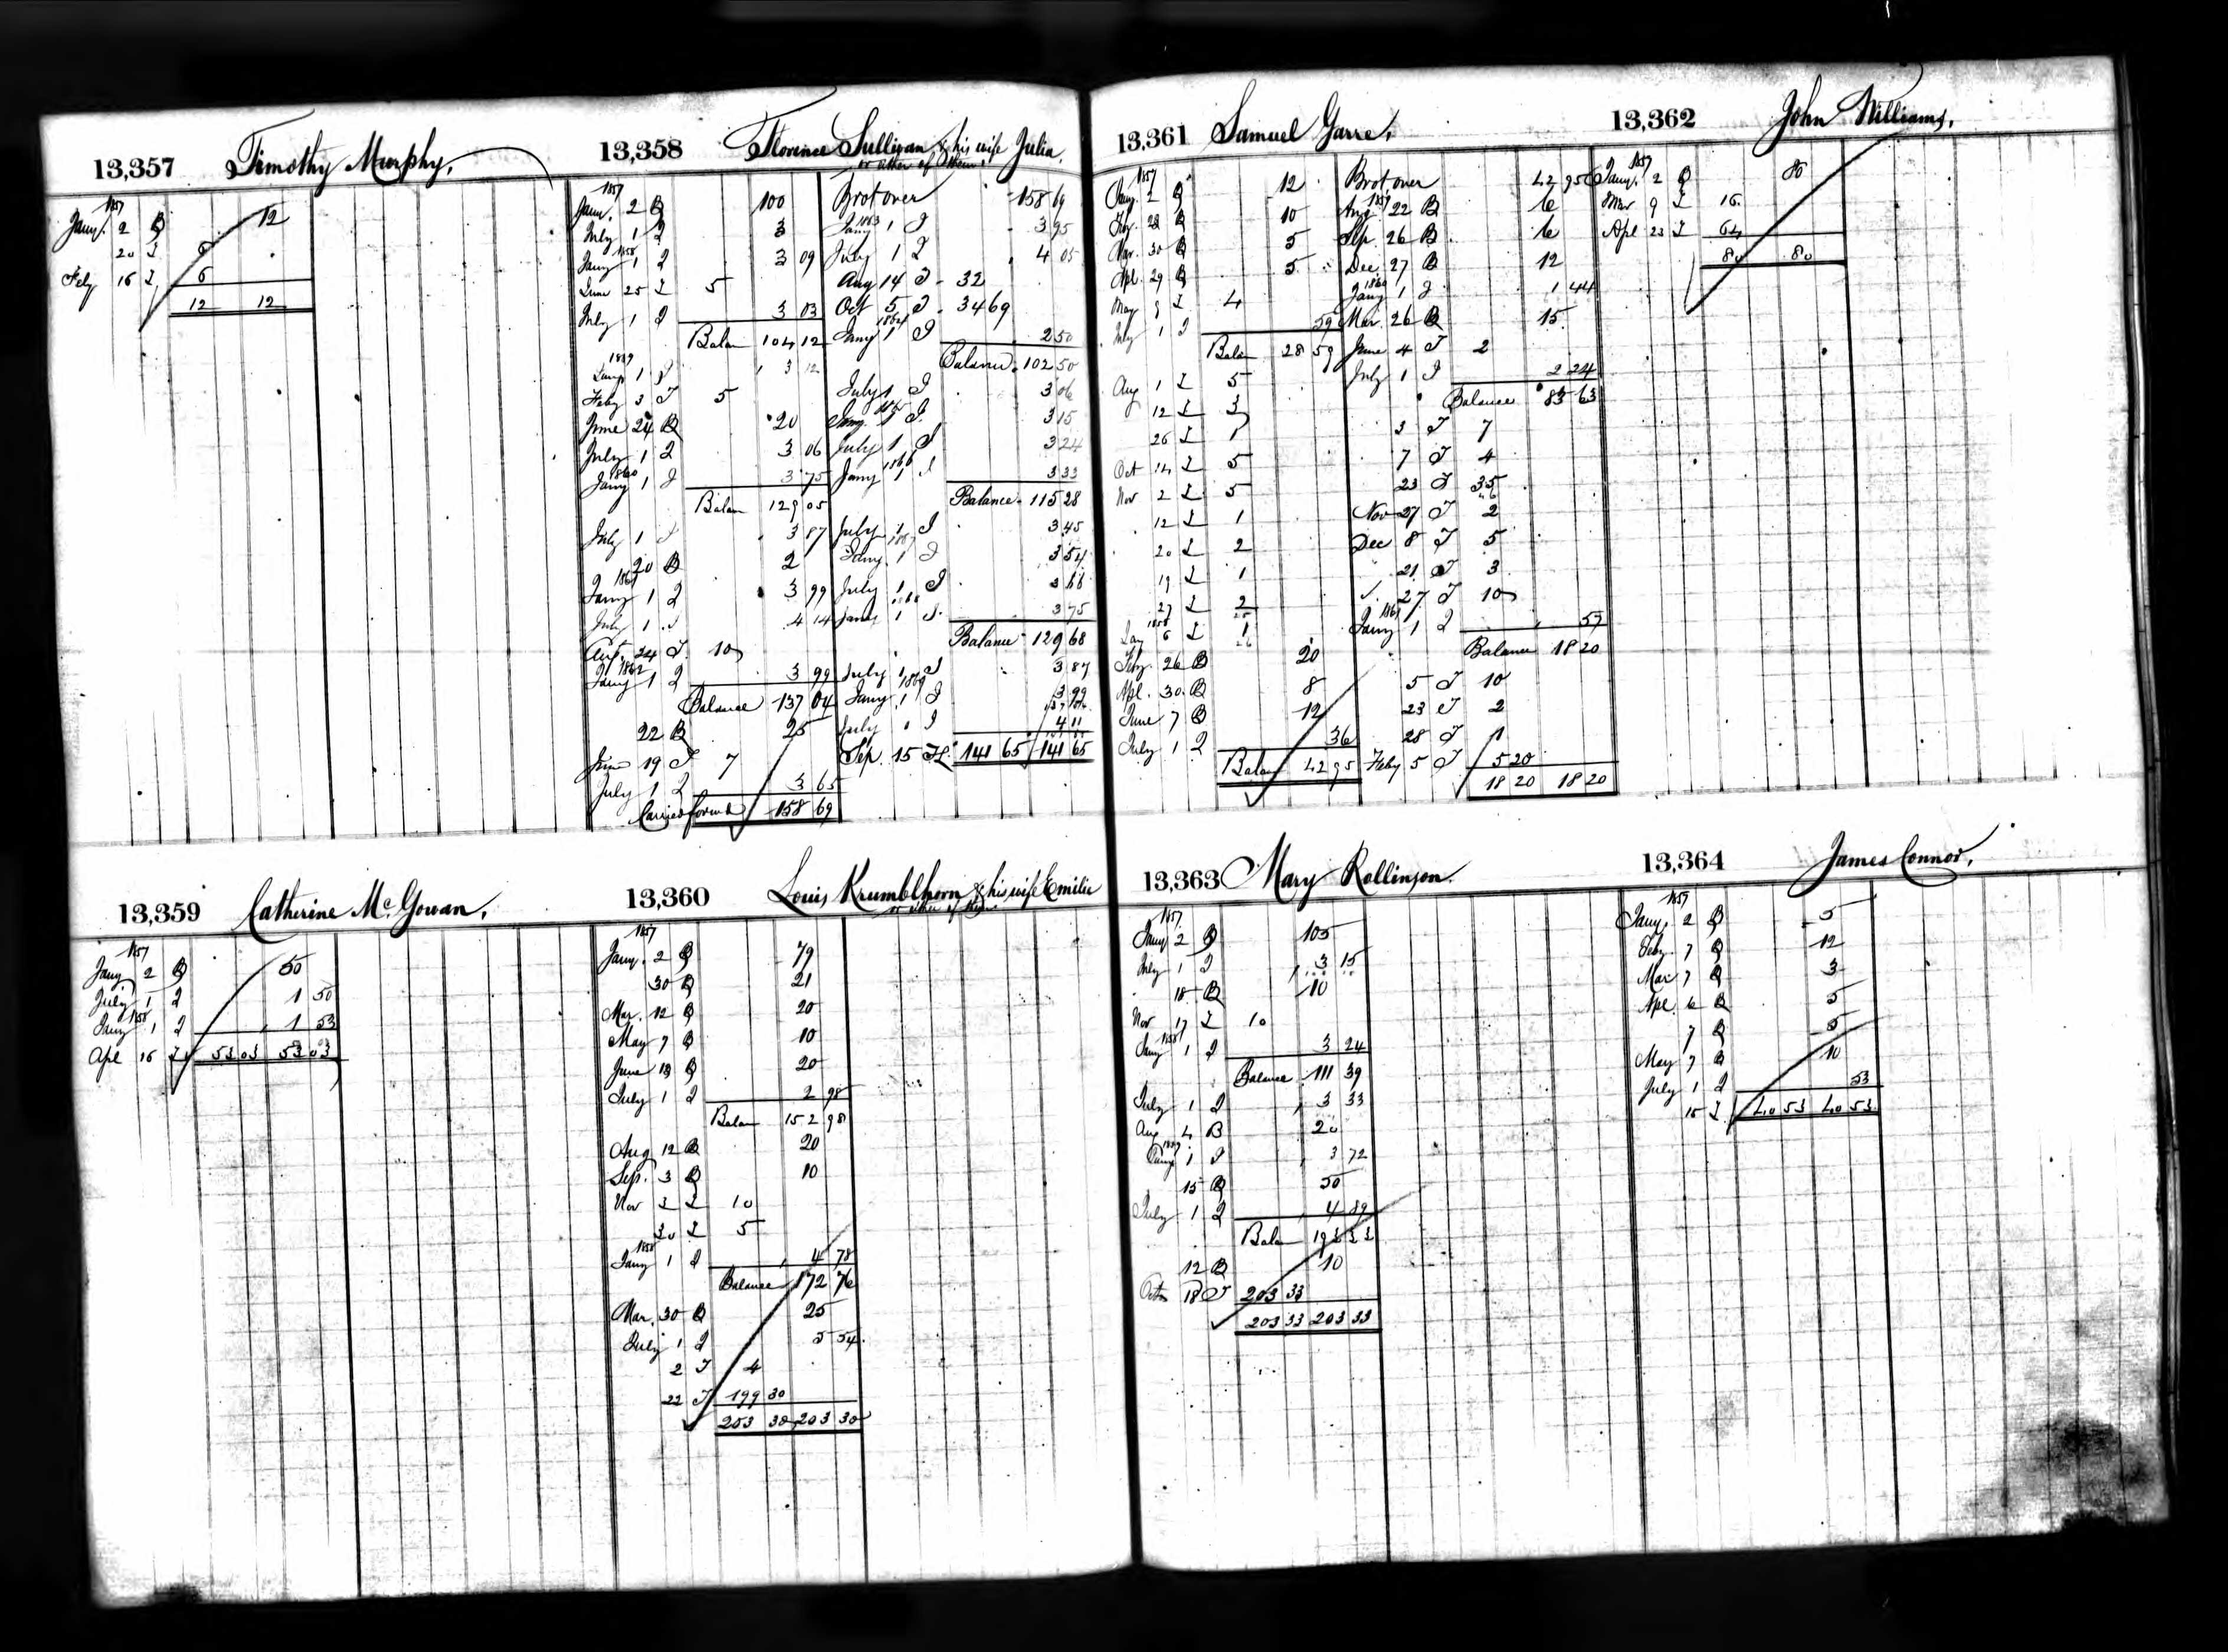 13,357 Timothy Murphy.
1857
Jany. 2 B 12
20 I 6
Feby 16 I 6
12 12
13,358 Florence Sullivan & his wife Julia.
or either of them
1857
Jany. 2 B 100
July 1 I 3
1858
Jany 1 I 3 09
June 25 I 5
July 1 I 3 03
Balan 104 12
1859
Jany 1 I 3 12
Feby 3 I 5
June 24 B 20
July 1 I 3 06
1860
Jany 1 I 3 75
Balan 129 05
July 1 I 3 87
20 B 2
1861
Jany 1 I 3 99
July 1 I 4 14
Aug. 24 I 10
1862
Jany 1 I 3 99
Balance 137 04
22 B 25
June 19 I 7
July 1 I 3 65
Carried forwd 158 69
Brot over 158 69
1863
Jany 1 I 3 95
July 1 I 4 05
Aug 14 I 32
Oct 5 I 34 69
1864
Jany 1 I 2 50
Balance 102 50
July 1 I 3 06
1865
Jany. 1 I 3 15
July 1 I 3 24
1866
Jany 1 I 3 33
Balance 115 28
July 1 I 3 45
1867
Jany. 1 I 3 54
July 1 I 3 66
1868
Jany 1 I 3 75
Balance 129 68
July 1 I 3 87
1869
Jany 1 I 3 99
July 1 I 4 11
Sep. 15 I 141 65 141 65
13,359 Catherine Mc Gowan.
1857
Jany 2 B 50
July 1 I 1 50
1858
Jany 1 I 1 53
Apl 16 I 53 03 53 03
13,360 Louis Krumblhorn & his wife Emilie
or either of them
1857
Jany. 2 B 79
30 B 21
Mar. 12 B 20
May 7 B 10
June 13 B 20
July 1 I 2 98
Balan 152 98
Aug 12 B 20
Sep. 3 B 10
Nov 2 I 10
30 I 5
1858
Jany 1 I 4 78
Balance 172 76
Mar. 30 B 25
July 1 I 5 54
2 I 4
22 I 199 30
203 30 203 30
13,361 Samuel Garre.
1857
Jany. 2 B 12
Feby. 28 B 10
Mar. 30 B 5
Apl. 29 B 5
May 8 I 4
July 1 I 59
Balan 28 59
Aug 1 I 5
12 I 3
26 I 1
Oct 14 I 5
Nov 2 I 5
12 I 1
20 I 2
19 I 1
27 I 2
1858
Jany 6 I 1
Feby. 26 B 20
Apl. 30 B 8
June 7 B 12
July 1 I 36
Balan 42 95
Brot over 42 95
1859
Aug 22 B 6
Sep. 26 B 6
Dec 27 B 12
1860
Jany 1 I 1 44
Mar. 26 B 15
June 4 I 2
July 1 I 2 24
Balance 83 63
3 I 7
7 I 4
23 I 35
Nov 27 I 2
Dec 8 I 5
21 I 3
27 I 10
1861
Jany 1 I 57
Balance 18 20
5 I 10
23 I 2
28 I 1
Feby 5 I 5 20
18 20 18 20
13,362 John Williams.
1857
Jany. 2 B 80
Mar 9 I 16
Apl 23 I 64
80 80
13,363 Mary Rollinson.
1857
Jany 2 B 105
July 1 I 3 15
18 B 10
Nov 17 I 10
1858
Jany 1 I 3 24
Balance 111 39
July 1 I 3 33
Aug 4 B 20
1859
Jany 1 I 3 72
15 B 50
July 1 I 4 89
Balan 193 33
12 B 10
Octo 18 I 203 33
203 33 203 33
13,364 James Connor.
1857
Jany. 2 B 5
Feby. 7 B 12
Mar 7 B 3
Apl. 6 B 5
7 B 5
May 7 B 10
July 1 I 53
15 I 40 53 40 53